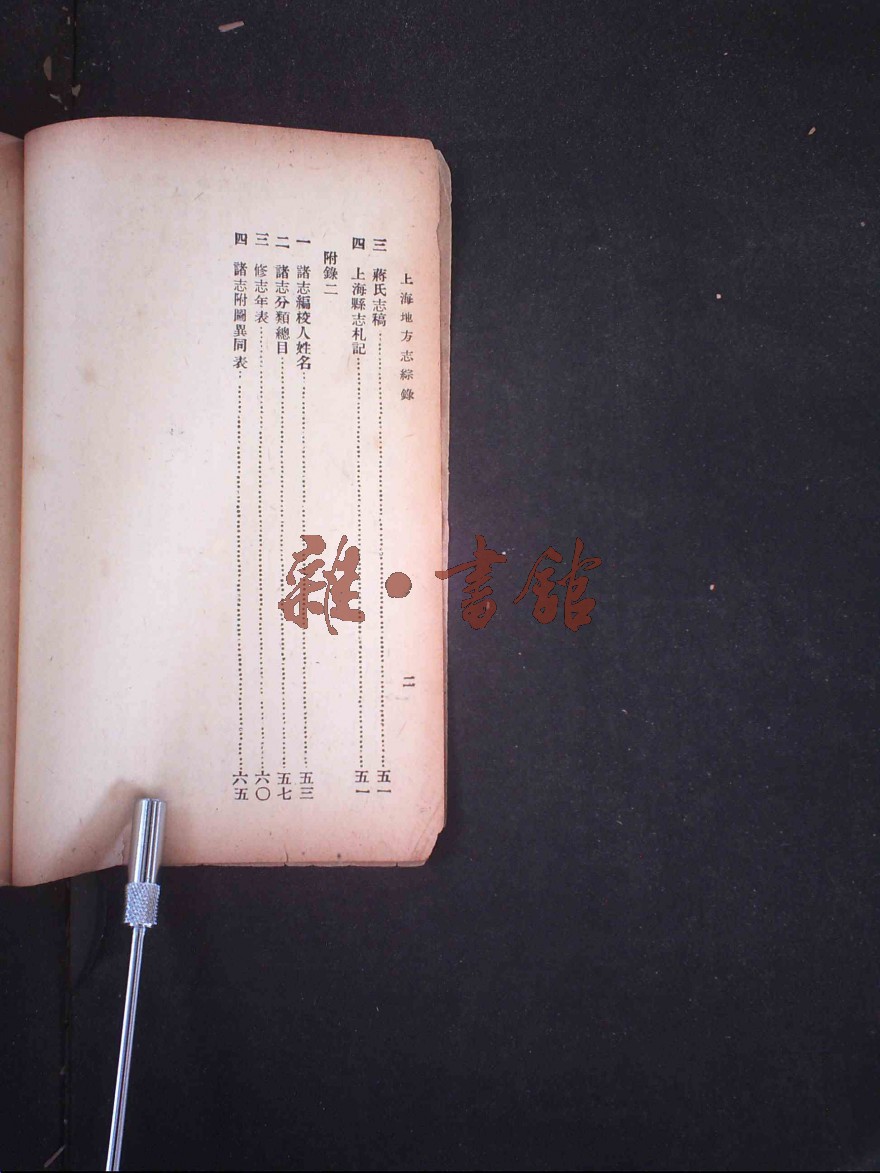 上海地方志綜錄
二
三 蔣氏志稿 五一
四 上海縣志札記 五一
附錄二
一 諸志編校人姓名 五三
二 諸志分類總目 五七
三 修志年表 六〇
四 諸志附圖異同表 六五
雜·書館